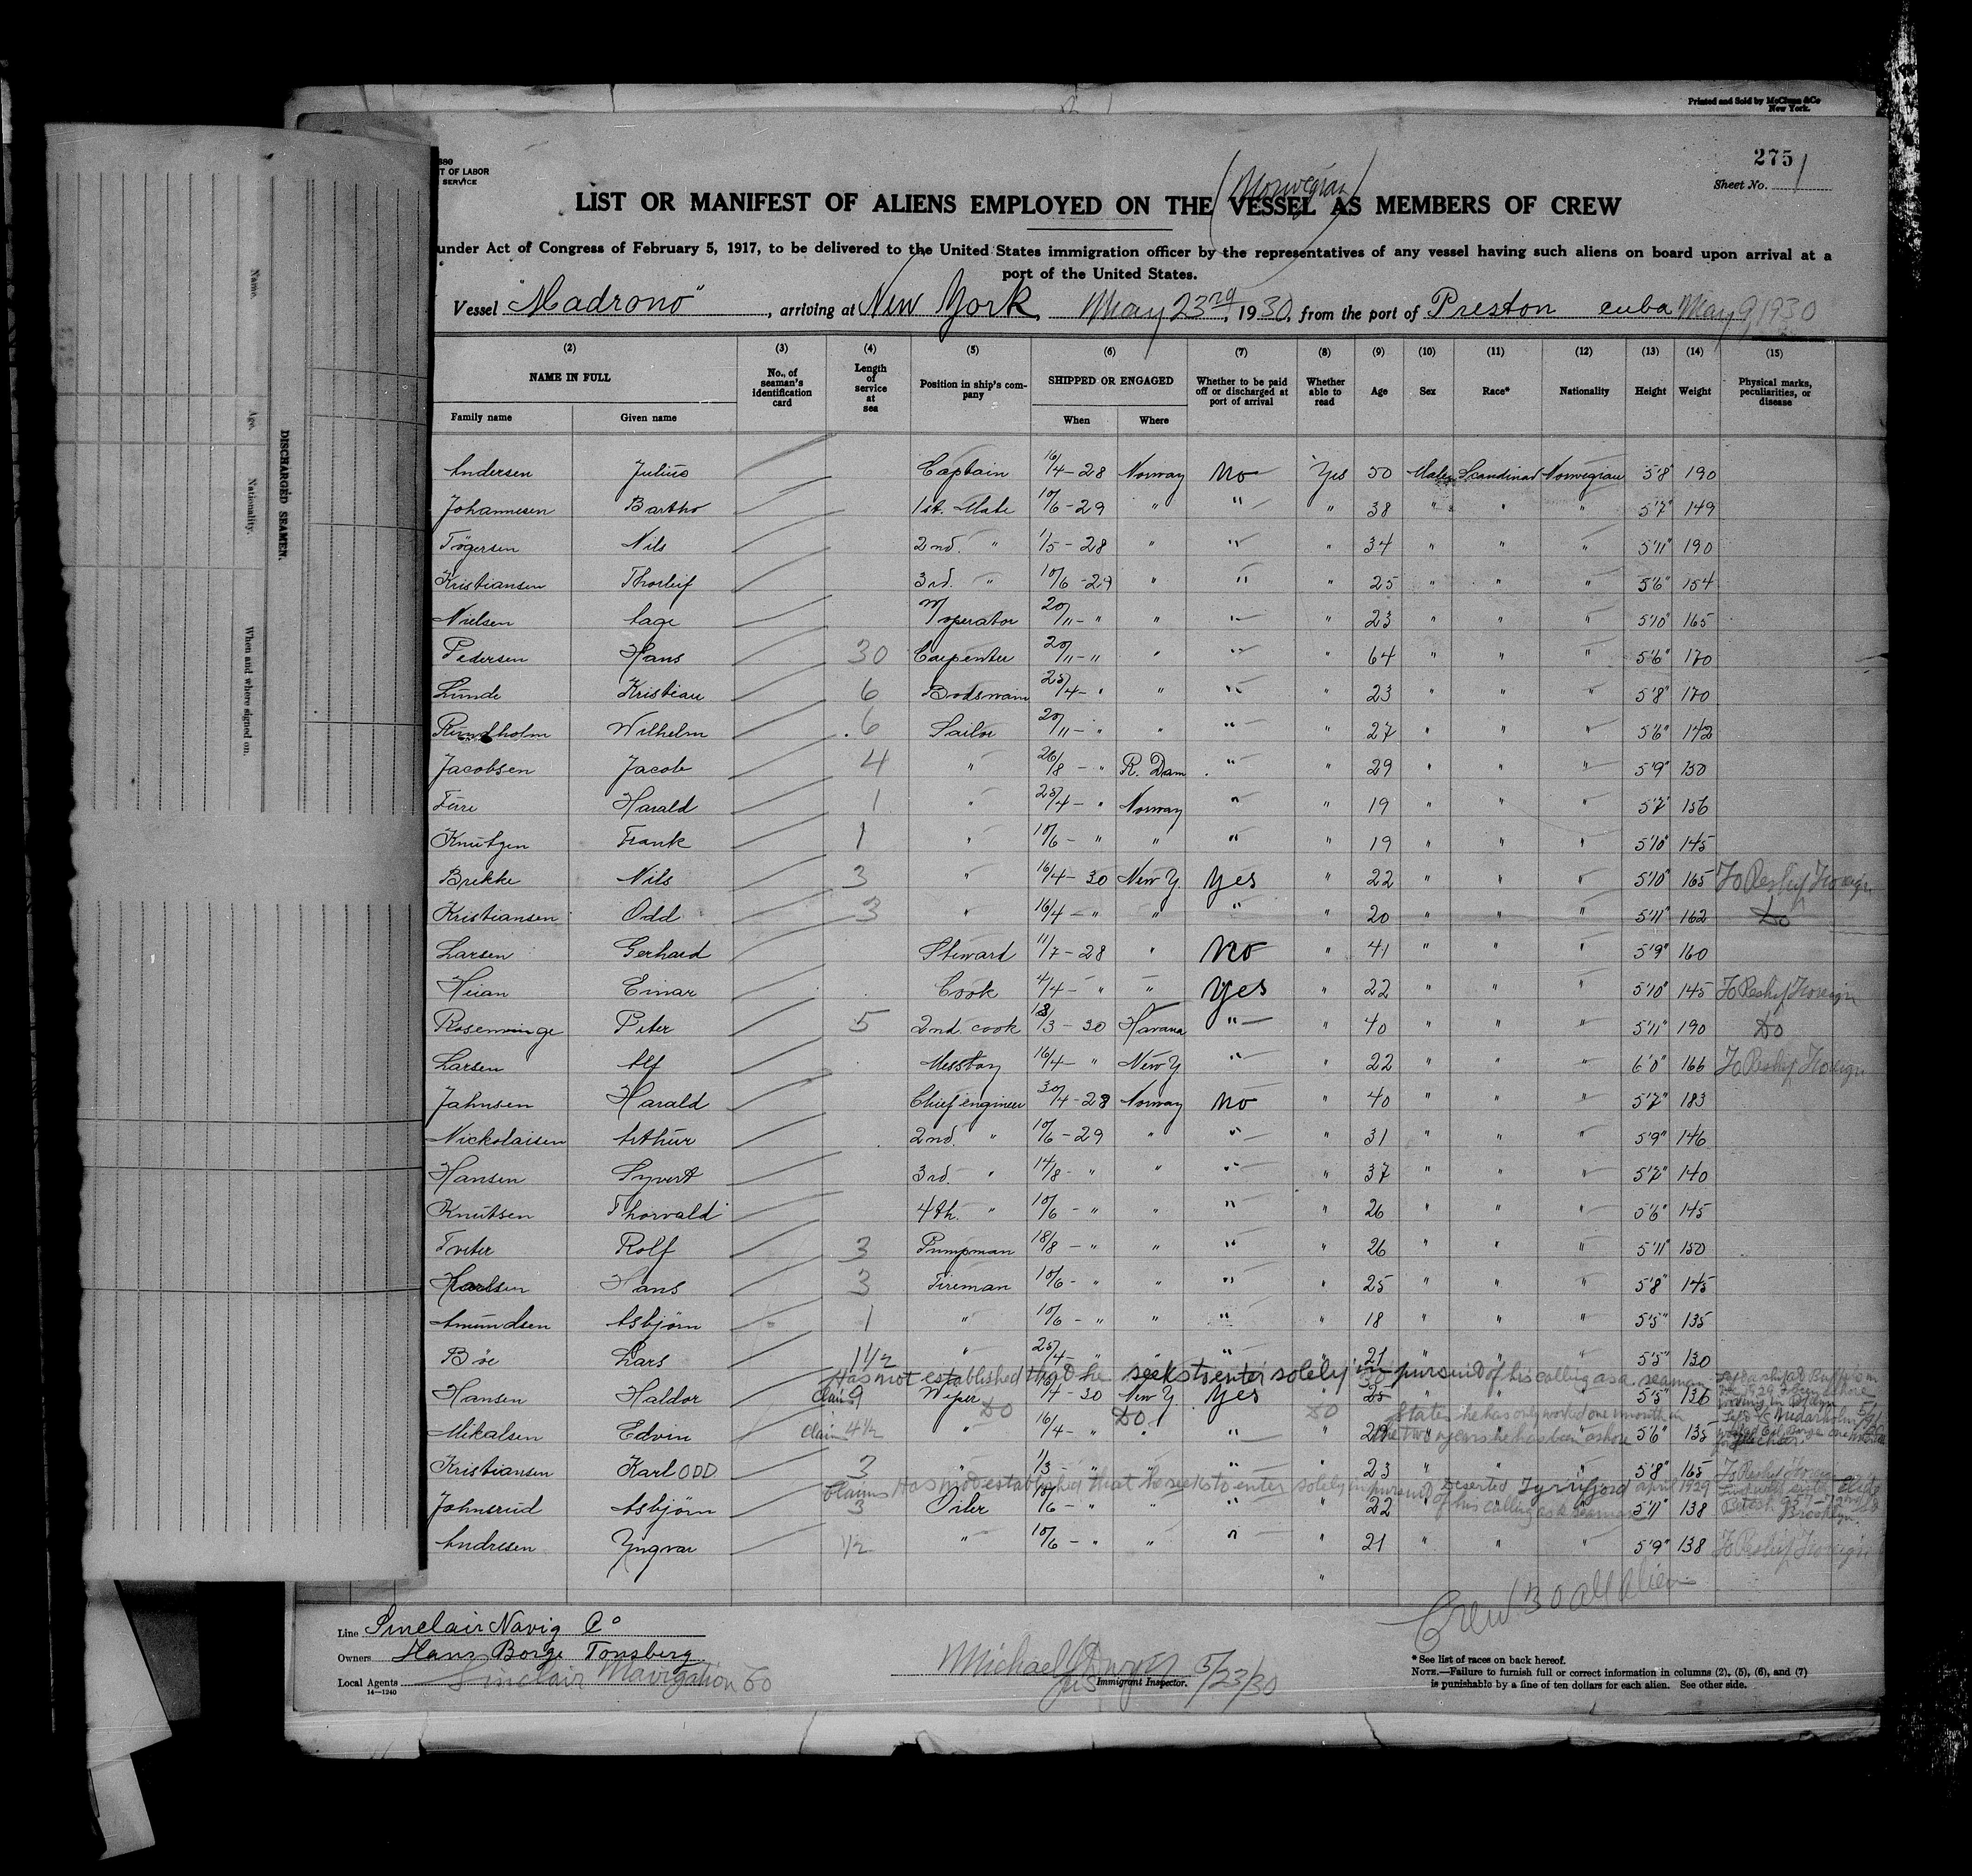 Printed and Sold by McClunn & Co
New York.
275
Sheet No. 1
680
T OF LABOR
SERVICE
(Norwegian)
LIST OR MANIFEST OF ALIENS EMPLOYED ON THE VESSEL AS MEMBERS OF CREW
under Act of Congress of February 5, 1917, to be delivered to the United States immigration officer by the representatives of any vessel having such aliens on board upon arrival at a
port of the United States.
Vessel "Madrono", arriving at New York, May 23rd, 1930, from the port of Preston cuba May 9, 1930
(2) (3) (4) (5) (6) (7) (8) (9) (10) (11) (12) (13) (14) (15)
NAME IN FULL
Family name Given name
No., of seaman's identification card
Length of service at sea
Position in ship's company
SHIPPED OR ENGAGED
When Where
Whether to be paid off or discharged at port of arrival
Whether able to read
Age
Sex
Race*
Nationality
Height
Weight
Physical marks, peculiarities, or disease
Andersen Julius Captain 16/4-28 Norway No Yes 50 Male Scandinav Norwegian 5'8" 190
Johannesen Bartho 1st. Mate 10/6-29 " " " 38 " " " 5'7" 149
Tøgersen Nils 2nd. " 1/5-28 " " " 34 " " " 5'11" 190
Kristiansen Thorleif 3rd. " 10/6-29 " " " 25 " " " 5'6" 154
Nielsen Aage W/operator 20/11-" " " " 23 " " " 5'10" 165
Pedersen Hans 30 Carpenter 20/11-" " " " 64 " " " 5'6" 170
Lunde Kristian 6 Bodswain 25/4-" " " " 23 " " " 5'8" 170
Rundholm Wilhelm 6 Sailor 20/11-" " " " 27 " " " 5'6" 142
Jacobsen Jacob 4 " 26/8-" R. Dam " " 29 " " " 5'9" 150
Harald 1 " 25/4-" Norway " " 19 " " " 5'7" 156
Knutzen Frank 1 " 10/6-" " " " 19 " " " 5'10" 145
Brekke Nils 3 " 16/4-30 New Y. Yes " 22 " " " 5'10" 165 To Reship Foreign
Kristiansen Odd 3 " 16/4-" " " " 20 " " " 5'11" 162 Do
Larsen Gerhard Steward 11/7-28 " No " 41 " " " 5'9" 160
Einar Cook 4/4-" " Yes " 22 " " " 5'10" 145 To Reship Foreign
Rosenvinge Peter 5 2nd. cook 18/3-30 Havana " " 40 " " " 5'11" 190 Do
Larsen Alf Messboy 16/4-" New Y. " " 22 " " " 6'0" 166 To Reship Foreign
Jahnsen Harald Chief engineer 30/4-28 Norway No " 40 " " " 5'7" 183
Nickolaisen Arthur 2nd. " 10/6-29 " " " 31 " " " 5'9" 146
Hansen Syvert 3rd. " 14/8-" " " " 37 " " " 5'7" 140
Knutsen Thorvald 4th. " 10/6-" " " " 26 " " " 5'6" 145
Tveter Rolf 3 Pumpman 18/8-" " " " 26 " " " 5'11" 150
Karlsen Hans 3 Fireman 10/6-" " " " 25 " " " 5'8" 145
Amundsen Asbjørn 1 " 10/6-" " " " 18 " " " 5'5" 135
Bøe Lars 1 1/2 " 25/4-" " " " 21 " " " 5'5" 130
Has not established that he seeks to enter solely in pursuit of his calling as a seaman
Hansen Haldor Claims 9 Wiper 16/4-30 New Y. Yes " 25 " " " 5'5" 136
Do Do Do States he has only worked one month in
Mikalsen Edvin claim 4 1/2 " 16/4-" " " " the two years he has been ashore 5'6" 135
Kristiansen Karl ODD 3 " 1/3-" " " " 23 " " " 5'8" 165
Claims Has not established that he seeks to enter solely in pursuit of his calling as a seaman Deserted Tyrifjord april 1929
Johnsrud Asbjørn 3 Oiler 10/6-" " " " 22 " " " 5'11" 138 Brooklyn
Andresen Yngvar 1/2 " 10/6-" " " " 21 " " " 5'9" 138 To Reship Foreign
Crew 30 all alien
Line Sinclair Navig Co
Owners Hans Borge Tonsberg
Local Agents Sinclair Navigation Co
14—1240
Michael
Immigrant Inspector. 5/23/30
* See list of races on back hereof.
NOTE.—Failure to furnish full or correct information in columns (2), (5), (6), and (7)
is punishable by a fine of ten dollars for each alien. See other side.
DISCHARGED SEAMEN.
Name. Age. Nationality. When and where signed on.